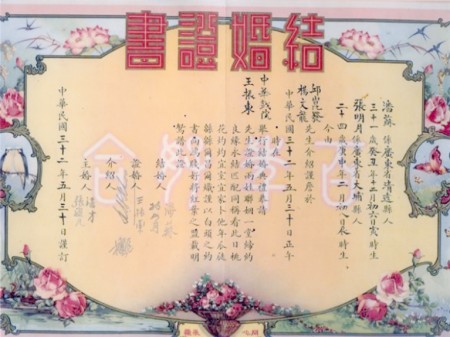 結婚證書
係廣東省清遠縣人
三十一歲癸丑年十二月初六日寅時生
張明月 係廣東省大埔縣人
二十四歲庚申年二月初八辰時生
今由
楊文龍 先生介紹謹於
中華民國三十二年五月三十日正午
時在
中華戲院 舉行結婚典禮恭請
王振東 先生證婚 兩姓聯姻一堂締約
良緣永結匹配同稱看此日桃
花灼灼宜室宜家卜他年瓜瓞
綿綿爾昌爾熾謹以白頭之約
書向鴻箋好將紅葉之盟載明
鴛譜此證
結婚人
證婚人 王振東
介紹人
主婚人
中華民國三十二年五月三十日謹訂